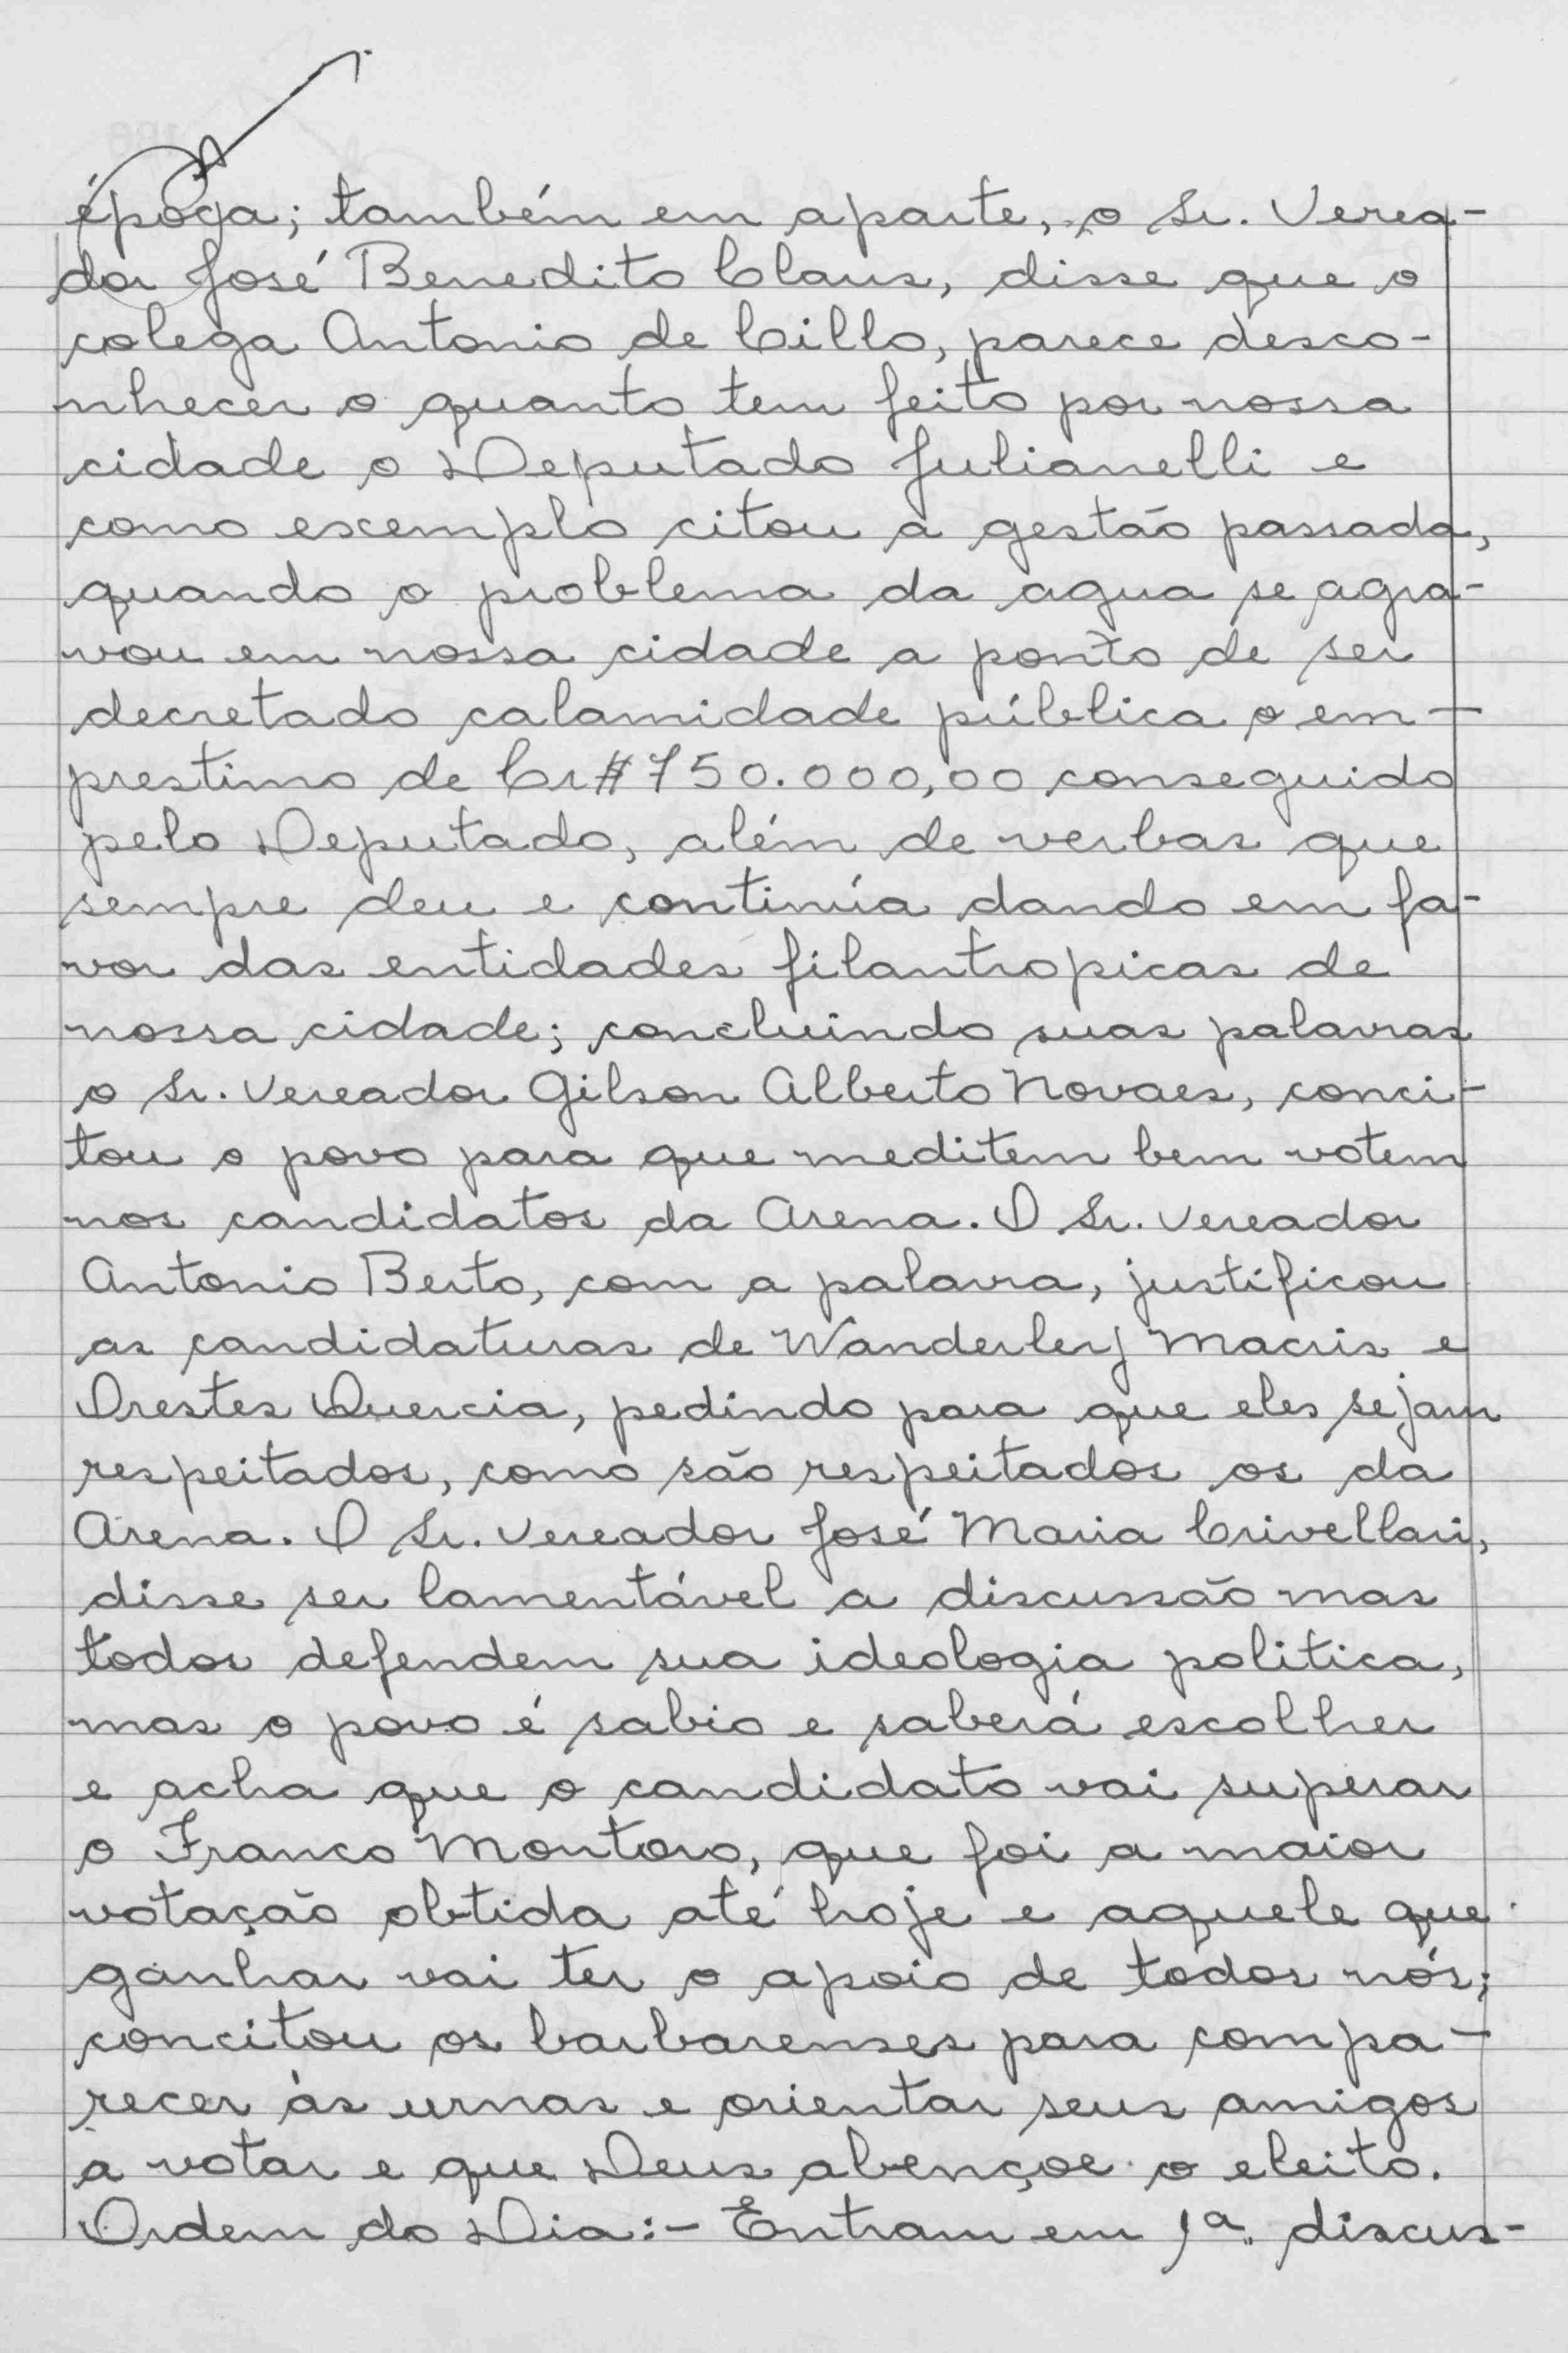 época; também em aparte, o Sr. Verea-
dor José Benedito Claus, disse que o
colega Antonio de Cillo, parece desco-
nhecer o quanto tem feito por nossa
cidade o Deputado Julianelli e
como exemplo citou a gestão passada,
quando o problema da agua se agra-
vou em nossa cidade a ponto de ser
decretado calamidade pública o em-
prestimo de Cr$ 750.000,00 conseguido
pelo Deputado, além de verbas que
sempre deu e continúa dando em fa-
vor das entidades filantropicas de
nossa cidade; concluindo suas palavras
o Sr. Vereador Gilson Alberto Novaes, conci-
tou o povo para que meditem bem votem
nos candidatos da Arena. O Sr. Vereador
Antonio Berto, com a palavra, justificou
as candidaturas de Wanderley Macris e
Orestes Quercia, pedindo para que eles sejam
respeitados, como são respeitados os da
Arena. O Sr. Vereador José Maria Crivellari,
disse ser lamentável a discussão mas
todos defendem sua ideologia politica,
mas o povo é sabio e saberá escolher
e acha que o candidato vai superar
o Franco Montoro, que foi a maior
votação obtida até hoje e aquele que
ganhar vai ter o apoio de todos nós;
concitou os barbarenses para compa-
recer às urnas e orientar seus amigos
a votar e que Deus abençoe o eleito.
Ordem do Dia:- Entram em 1ª discus-